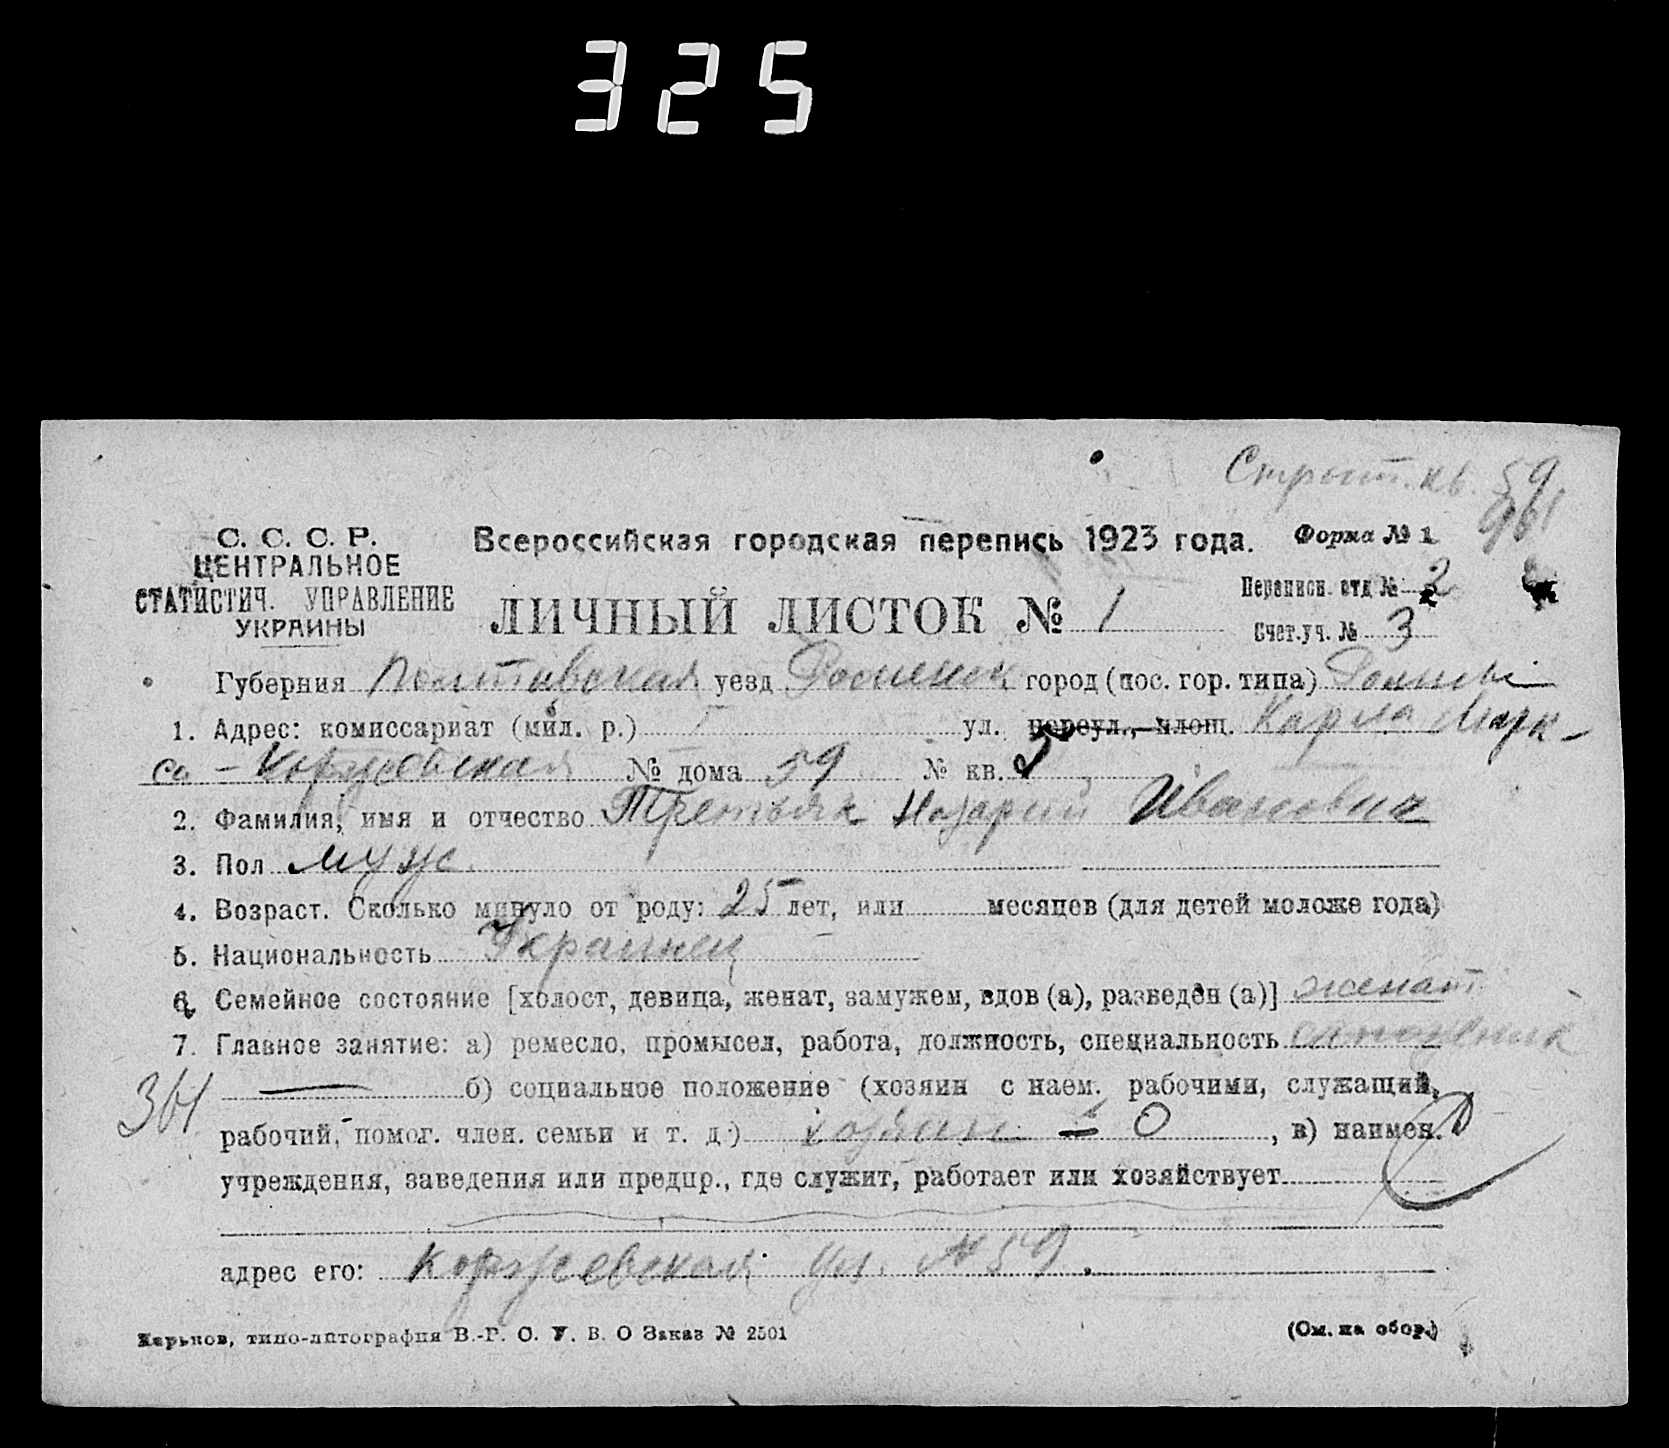 325
Строит. кв. 59
961
С. С. С. Р.
ЦЕНТРАЛЬНОЕ
СТАТИСТИЧ. УПРАВЛЕНИЕ
УКРАИНЫ
Всероссийская городская перепись 1923 года. Форма № 1
ЛИЧНЫЙ ЛИСТОК № 1
Переписн. отд № 2
Счет.уч. № 3
Губерния Полтавская уезд Роменск город (пос. гор. типа) Ромны
1. Адрес: комиссариат (мил. р.) ул. переул., площ. Карла Марк-
са - Коржевская № дома 59 № кв.
2. Фамилия, имя и отчество Третьяк Назарий Иванович
3. Пол муж.
4. Возраст. Сколько минуло от роду: 25 лет, или месяцев (для детей моложе года)
5. Национальность Украинец
6. Семейное состояние [холост, девица, женат, замужем, вдов (а), разведен (а)] женат
7. Главное занятие: а) ремесло, промысел, работа, должность, специальность сапожник
361
б) социальное положение (хозяин с наем. рабочими, служащий,
рабочий, помог. член. семьи и т. д.) хозяин = 0, в) наимен.
учреждения, заведения или предпр., где служит, работает или хозяйствует
адрес его: Коржевская ул. № 59.
Харьков, типо-литография В.-Г. О. У. В. О Заказ № 2501
(См. на обор.)